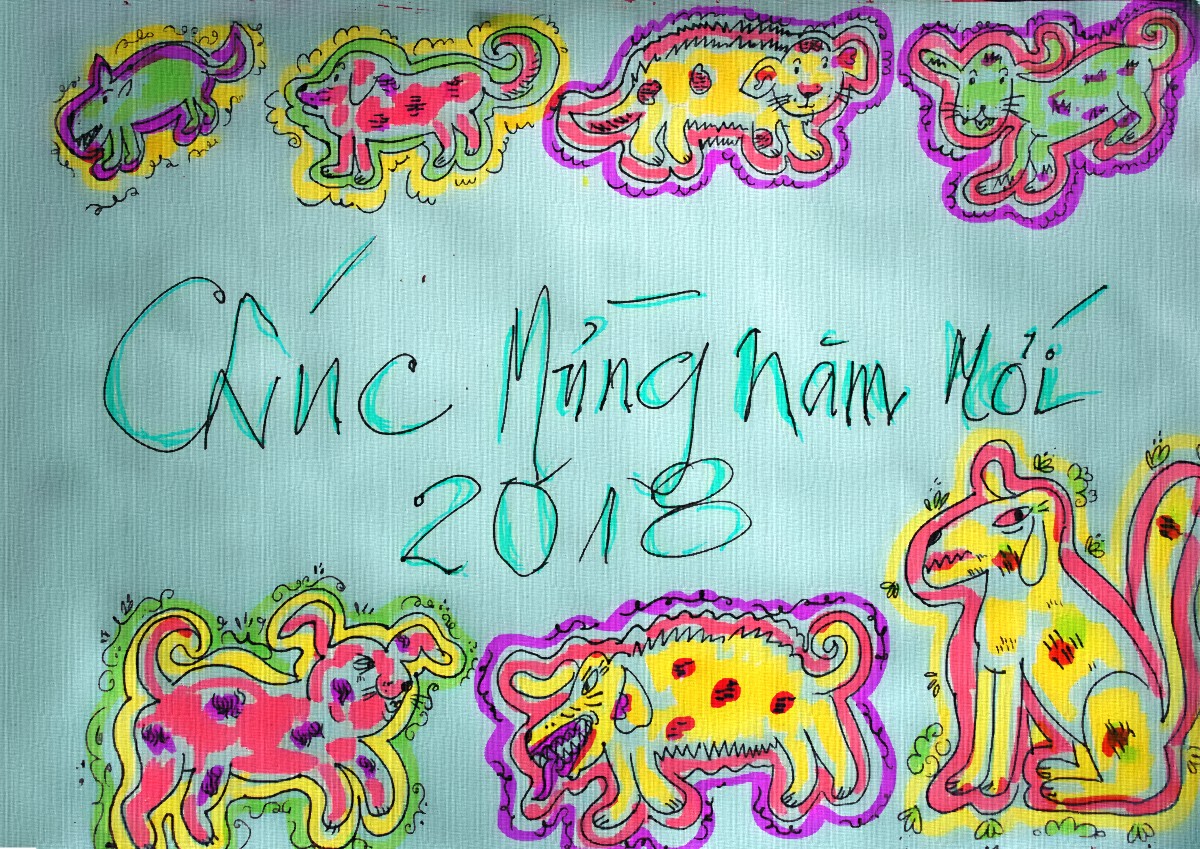 Chúc Mừng năm Mới
2018